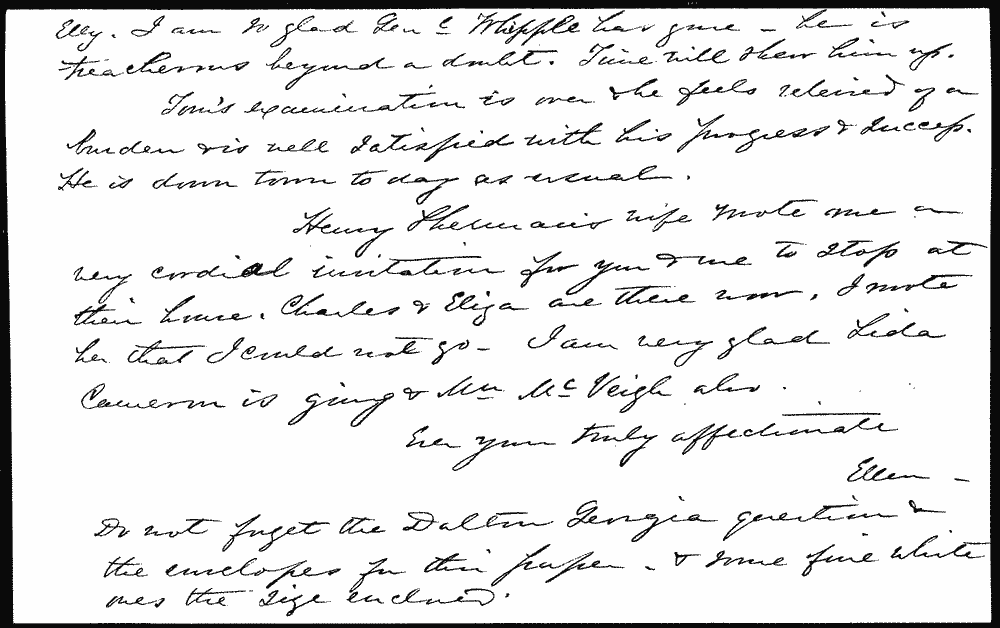 Elly. I am so glad Genl Whipple has gone - he is
treacherous beyond a doubt. Time will shew him up.
Tom's examination is over & he feels relieved of a
burden & is well satisfied with his progress & success.
He is down town to day as usual.
Henry Sherman's wife wrote me a
very cordial invitation for you & me to stop at
their house. Charles & Eliza are there now. I wrote
her that I could not go - I am very glad Lida
Cameron is going & Mrs McVeigh also.
Ever your truly affectionate
Ellen -
Do not forget the Dalton Georgia question &
the envelopes for this paper - & some fine white
ones the size enclosed.